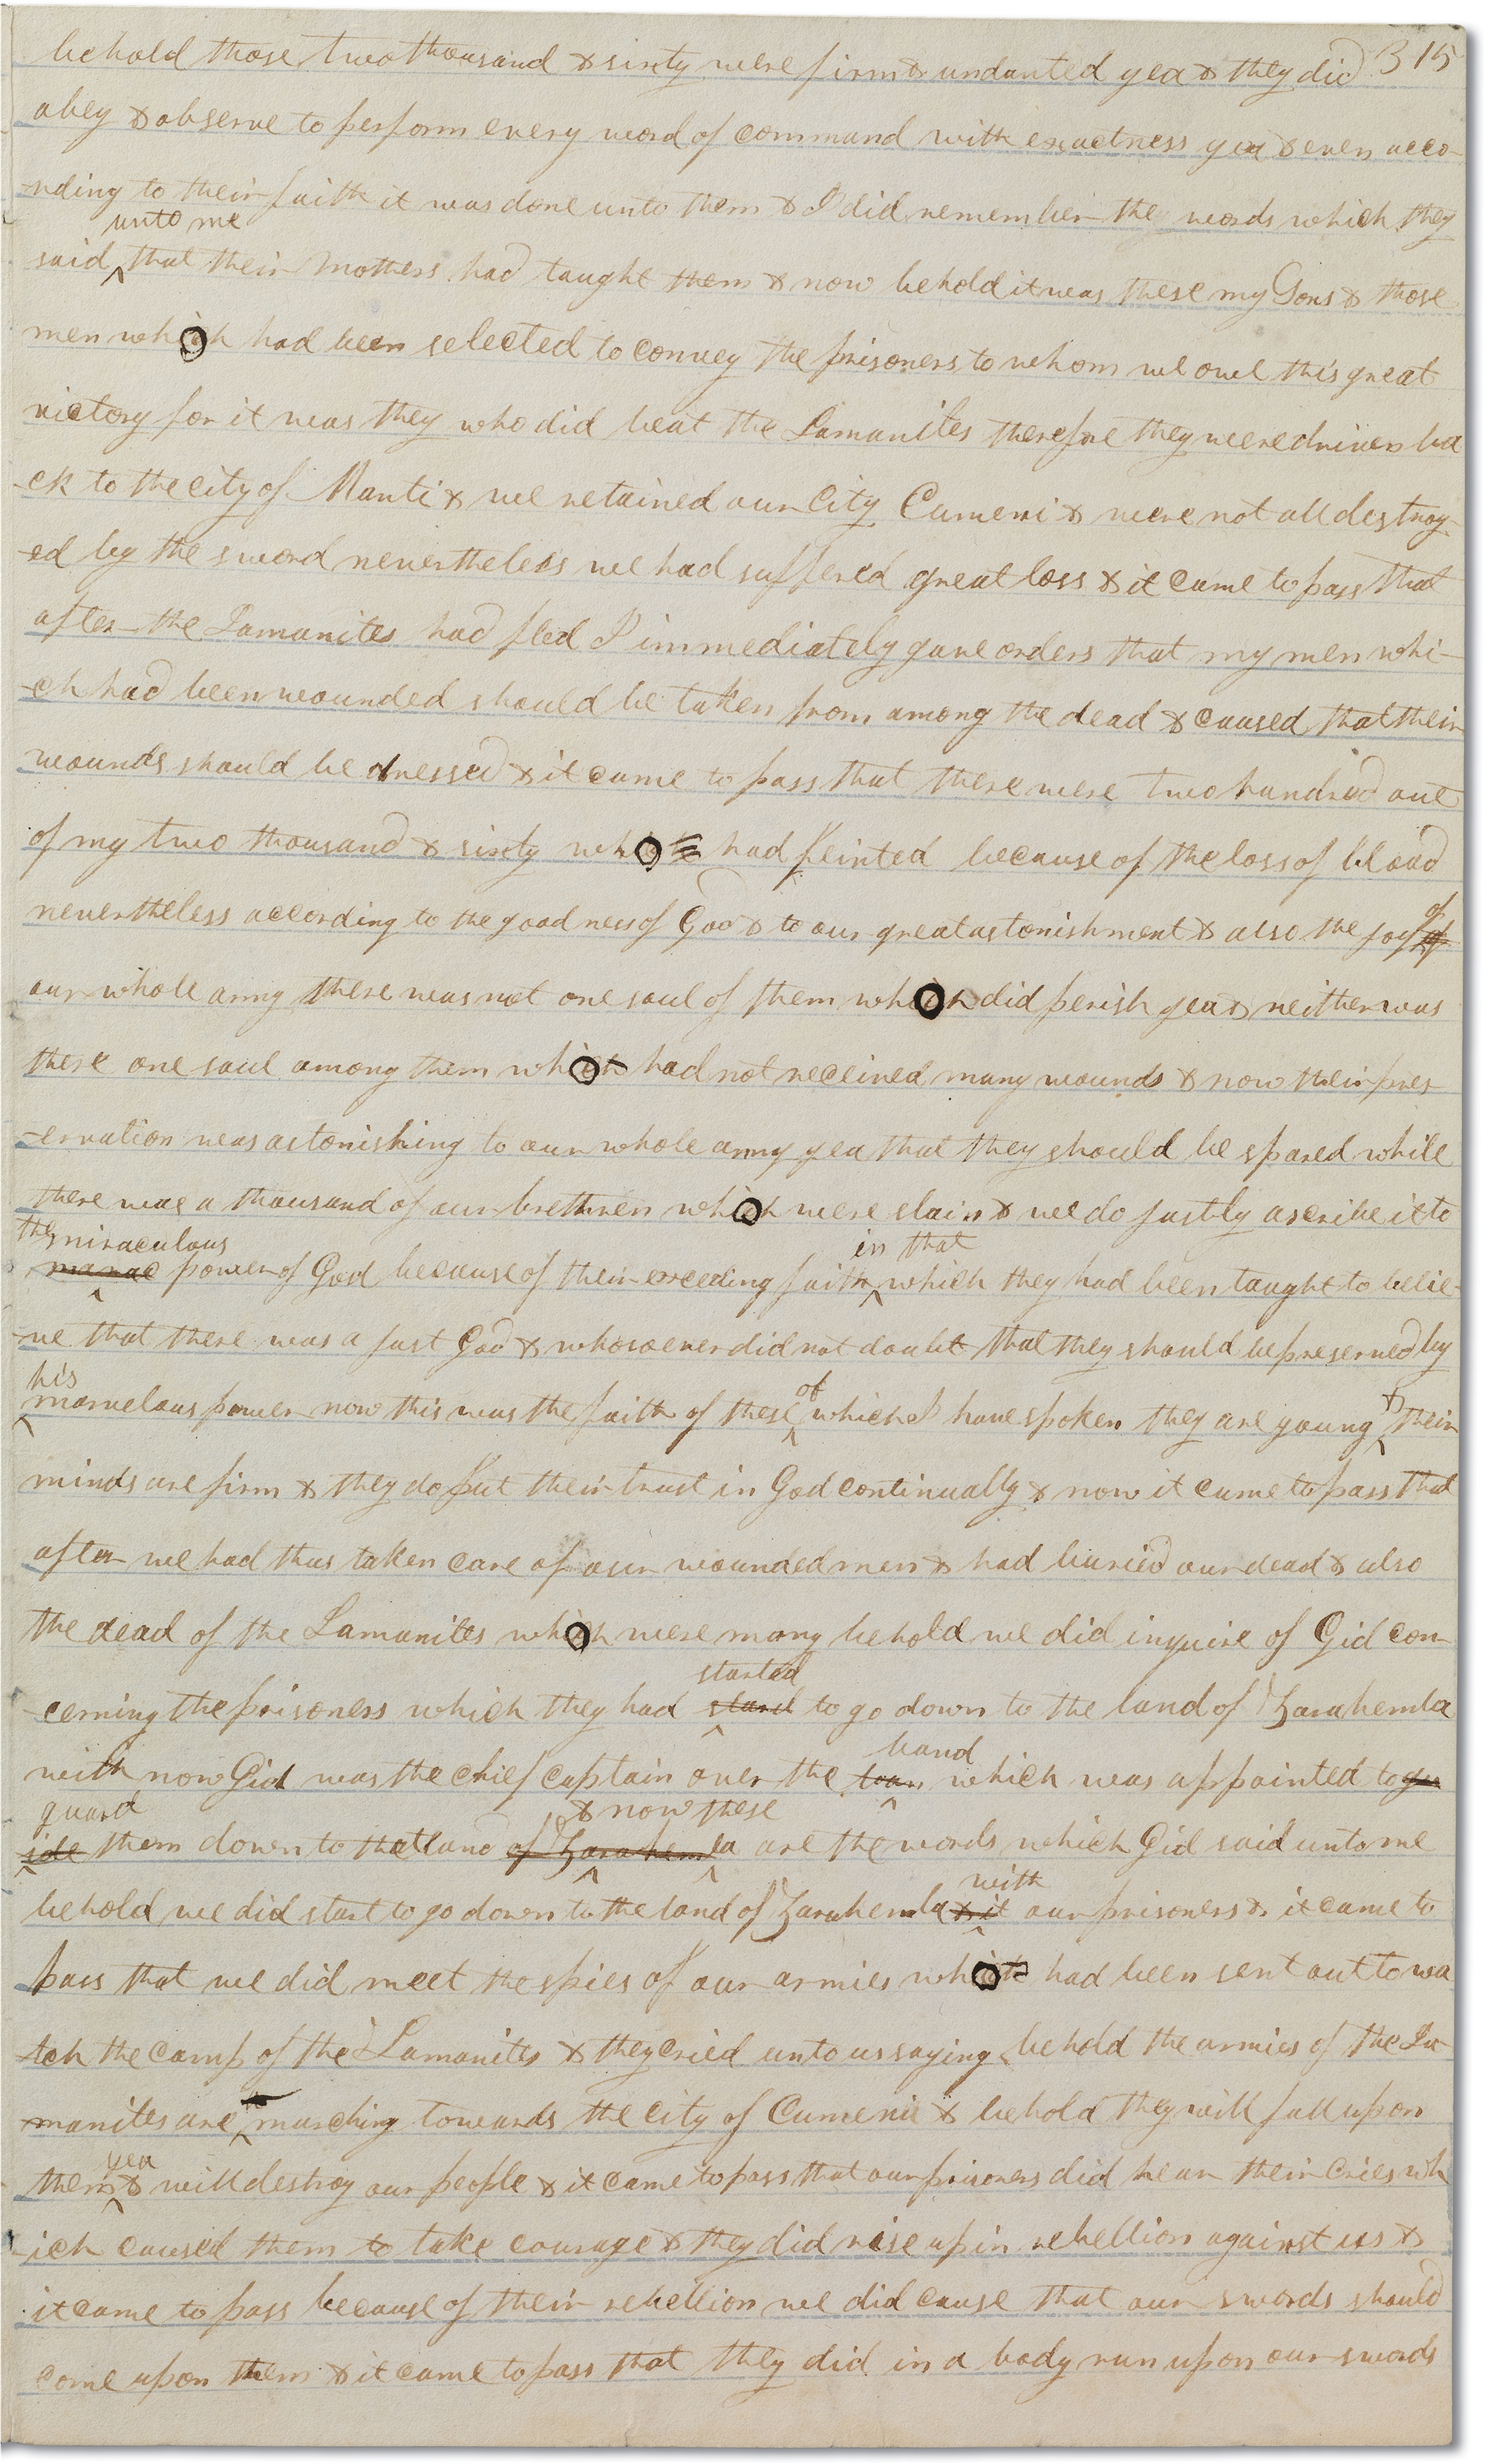 behold those two thousand & sixty were firm & undanted yea & they did 315
obey & observe to perform every word of command with exactness yea & even acco-
-rding to their faith it was done unto them & I did remember the words which they
unto me
said that their mothers had taught them & now behold it was these my Sons & those
men which had been selected to convey the prisoners to whom we owe this great
victory for it was they who did beat the Lamanites therefore they were driven ba
-ck to the city of Manti & we retained our City Cumeni & were not all destroy-
-ed by the sword nevertheless we had suffered great loss & it came to pass that
after the Lamanites had fled I immediately gave orders that my men whi-
-ch had been wounded should be taken from among the dead & caused that their
wounds should be dressed & it came to pass that there were two hundred out
of my two thousand & sixty which had feinted because of the loss of blood
of
nevertheless according to the goodness of God & to our great astonishment & also the joy of
our whole army there was not one soul of them which did perish yea & neither was
there one soul among them which had not received many wounds & now their pres
-ervation was astonishing to our whole army yea that they should be spared while
there was a thousand of our brethren which were slain & we do justly ascribe it to
the miraculous in that
power of God because of their exceeding faith which they had been taught to belie-
-ve that there was a just God & whosoever did not doubt that they should be preserved by
his of &
marvelous power now this was the faith of these which I have spoken they are young their
minds are firm & they do put their trust in God continually & now it came to pass that
after we had thus taken care of our wounded men & had buried our dead & also
the dead of the Lamanites which were many behold we did inquire of Gid con-
started
-cerning the prisoners which they had start to go down to the land of Zarahemla
band
with now Gid was the chief captain over the which was appointed to gu
guard & now these
ide them down to that land of Zarahemla are the words which Gid said unto me
with
behold we did start to go down to the land of Zarahemla & it our prisoners & it came to
pass that we did meet the spies of our armies which had been sent out to wa
-tch the camp of the Lamanites & they cried unto us saying behold the armies of the La-
-manites are marching towards the city of Cumeni & behold they will fall upon
yea
them & will destroy our people & it came to pass that our prisoners did hear their cries wh
-ich caused them to take courage & they did rise up in rebellion against us &
it came to pass because of their rebellion we did cause that our swords should
come upon them & it came to pass that they did in a body run upon our swords